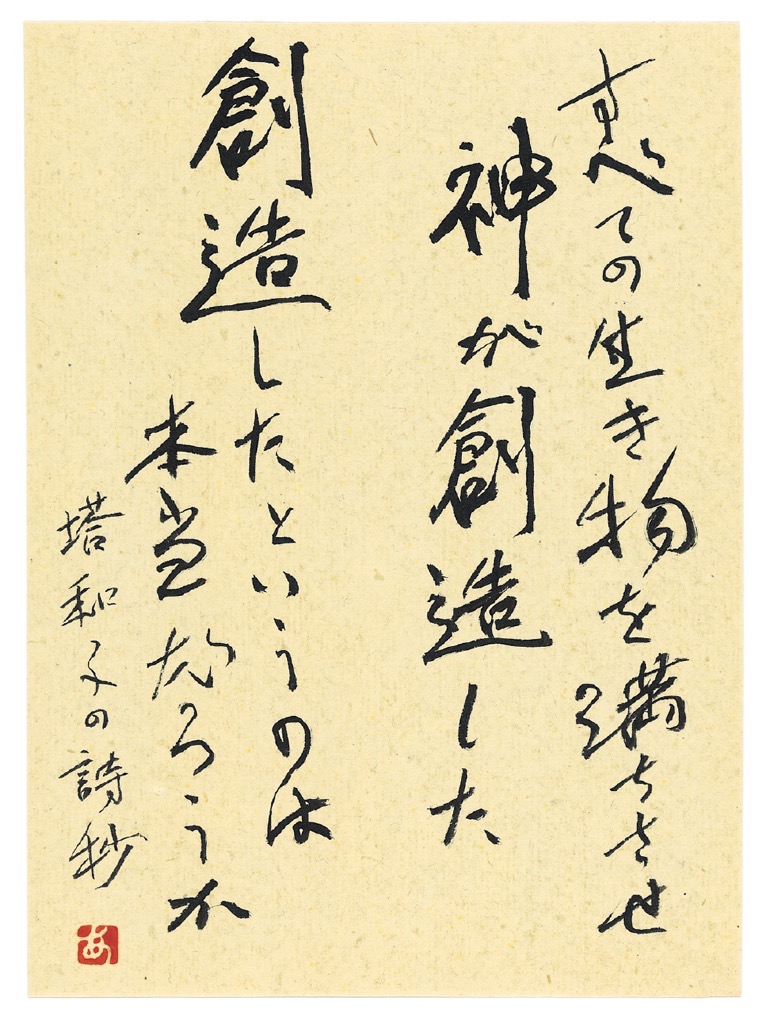 すべての生き物を満ちさせ
神が創造した
創造したというのは
本当だろうか
塔和子の詩抄
あ